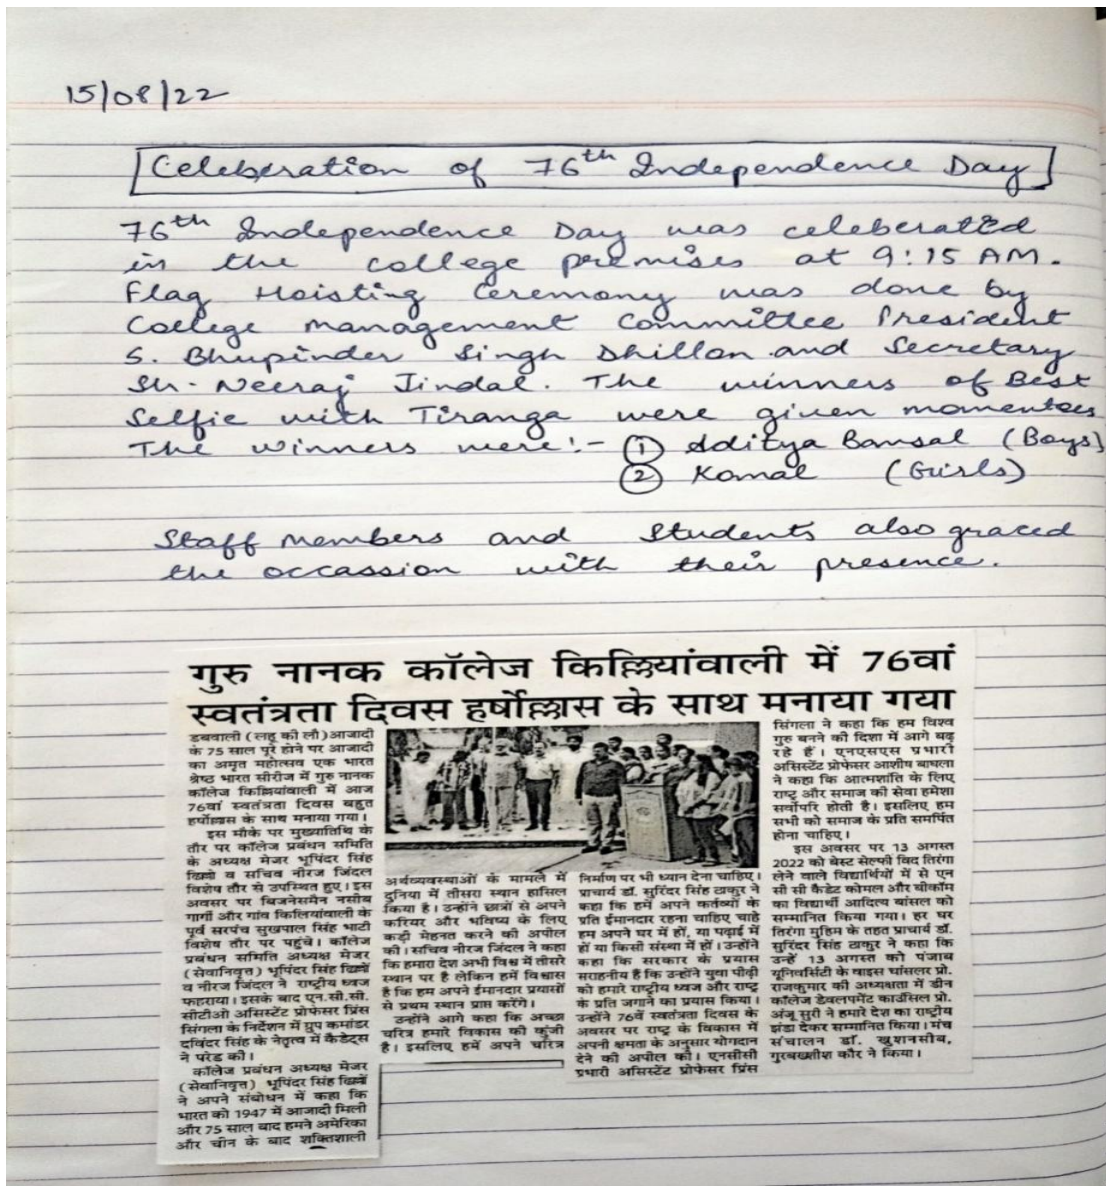 15/08/22
Celeberation of 76th Independence Day
76th Independence Day was celeberated
in the college premises at 9:15 AM.
Flag Hoisting Ceremony was done by
College management Committee President
S. Bhupinder Singh Dhillon and Secretary
Sh. Neeraj Jindal. The winners of Best
Selfie with Tiranga were given momentoes
The winners were:- ① Aditya Bansal (Boys)
② Komal (Girls)
Staff members and Students also graced
the occassion with their presence.
गुरु नानक कॉलेज किल्लियांवाली में 76वां
स्वतंत्रता दिवस हर्षोल्लास के साथ मनाया गया
डबवाली (लहू की लौ) आजादी
के 75 साल पूरे होने पर आजादी
का अमृत महोत्सव एक भारत
श्रेष्ठ भारत सीरीज में गुरु नानक
कॉलेज किल्लियांवाली में आज
76वां स्वतंत्रता दिवस बहुत
हर्षोल्लास के साथ मनाया गया।
इस मौके पर मुख्यातिथि के
तौर पर कॉलेज प्रबंधन समिति
के अध्यक्ष मेजर भूपिंदर सिंह
ढिल्लों व सचिव नीरज जिंदल
विशेष तौर से उपस्थित हुए। इस
अवसर पर बिजनेसमैन नसीब
गार्गी और गांव किलियांवाली के
पूर्व सरपंच सुखपाल सिंह भाटी
विशेष तौर पर पहुंचे। कॉलेज
प्रबंधन समिति अध्यक्ष मेजर
(सेवानिवृत्त) भूपिंदर सिंह ढिल्लों
व नीरज जिंदल ने राष्ट्रीय ध्वज
फहराया। इसके बाद एन.सी.सी.
सीटीओ असिस्टेंट प्रोफेसर प्रिंस
सिंगला के निर्देशन में ग्रुप कमांडर
दविंदर सिंह के नेतृत्व में कैडेट्स
ने परेड की।
कॉलेज प्रबंधन अध्यक्ष मेजर
(सेवानिवृत्त) भूपिंदर सिंह ढिल्लों
ने अपने संबोधन में कहा कि
भारत को 1947 में आजादी मिली
और 75 साल बाद हमने अमेरिका
और चीन के बाद शक्तिशाली
अर्थव्यवस्थाओं के मामले में
दुनिया में तीसरा स्थान हासिल
किया है। उन्होंने छात्रों से अपने
करियर और भविष्य के लिए
कड़ी मेहनत करने की अपील
की। सचिव नीरज जिंदल ने कहा
कि हमारा देश अभी विश्व में तीसरे
स्थान पर है लेकिन हमें विश्वास
है कि हम अपने ईमानदार प्रयासों
से प्रथम स्थान प्राप्त करेंगे।
उन्होंने आगे कहा कि अच्छा
चरित्र हमारे विकास की कुंजी
है। इसलिए हमें अपने चरित्र
निर्माण पर भी ध्यान देना चाहिए।
प्राचार्य डॉ. सुरिंदर सिंह ठाकुर ने
कहा कि हमें अपने कर्तव्यों के
प्रति ईमानदार रहना चाहिए चाहे
हम अपने घर में हों, या पढ़ाई में
हों या किसी संस्था में हों। उन्होंने
कहा कि सरकार के प्रयास
सराहनीय हैं कि उन्होंने युवा पीढ़ी
को हमारे राष्ट्रीय ध्वज और राष्ट्र
के प्रति जगाने का प्रयास किया।
उन्होंने 76वें स्वतंत्रता दिवस के
अवसर पर राष्ट्र के विकास में
अपनी क्षमता के अनुसार योगदान
देने की अपील की। एनसीसी
प्रभारी असिस्टेंट प्रोफेसर प्रिंस
सिंगला ने कहा कि हम विश्व
गुरु बनने की दिशा में आगे बढ़
रहे हैं। एनएसएस प्रभारी
असिस्टेंट प्रोफेसर आशीष बाघला
ने कहा कि आत्मशांति के लिए
राष्ट्र और समाज की सेवा हमेशा
सर्वोपरि होती है। इसलिए हम
सभी को समाज के प्रति समर्पित
होना चाहिए।
इस अवसर पर 13 अगस्त
2022 को बेस्ट सेल्फी विद तिरंगा
लेने वाले विद्यार्थियों में से एन
सी सी कैडेट कोमल और बीकॉम
का विद्यार्थी आदित्य बांसल को
सम्मानित किया गया। हर घर
तिरंगा मुहिम के तहत प्राचार्य डॉ.
सुरिंदर सिंह ठाकुर ने कहा कि
उन्हें 13 अगस्त को पंजाब
यूनिवर्सिटी के वाइस चांसलर प्रो.
राजकुमार की अध्यक्षता में डीन
कॉलेज डेवलपमेंट काउंसिल प्रो.
अंजू सुरी ने हमारे देश का राष्ट्रीय
झंडा देकर सम्मानित किया। मंच
संचालन डॉ. खुशनसीब,
गुरबख्शीश कौर ने किया।